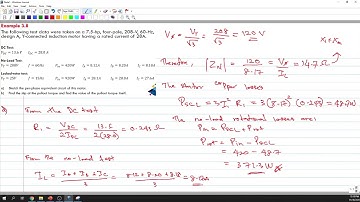 Example 3.8
The following test data were taken on a 7.5-hp, four-pole, 208-V, 60-Hz,
design A, Y-connected induction motor having a rated current of 28A.
DC Test:
V_DC = 13.6 V    I_DC = 28.0 A
No-Load Test:
Locked-rotor test:
a) Sketch the per-phase equivalent circuit of this motor.
b) Find the slip at the pullout torque and find the value of the pullout torque itself.
a) From the DC test
R₁ = V_DC / 2I_DC = 13.6 / 2(28.0) = 0.243 Ω
From the no-load test
I_L = (I_A + I_B + I_C) / 3 = (8.12 + 8.20 + 8.18) / 3 = 8.17A
V_φ = V_T / √3 = 208 / √3 = 120 V
X₁ + X_m
Therefore, |Z_NL| = 120 / 8.17 = V_φ / I_L = 14.7 Ω
The stator copper losses
P_SCL = 3I² R₁ = 3 (8.17)² (0.243) = 48.7 W
The no-load rotational losses are:
P_in = P_SCL + P_rot
P_rot = P_in - P_SCL
= 420 - 48.7
= 371.3 W